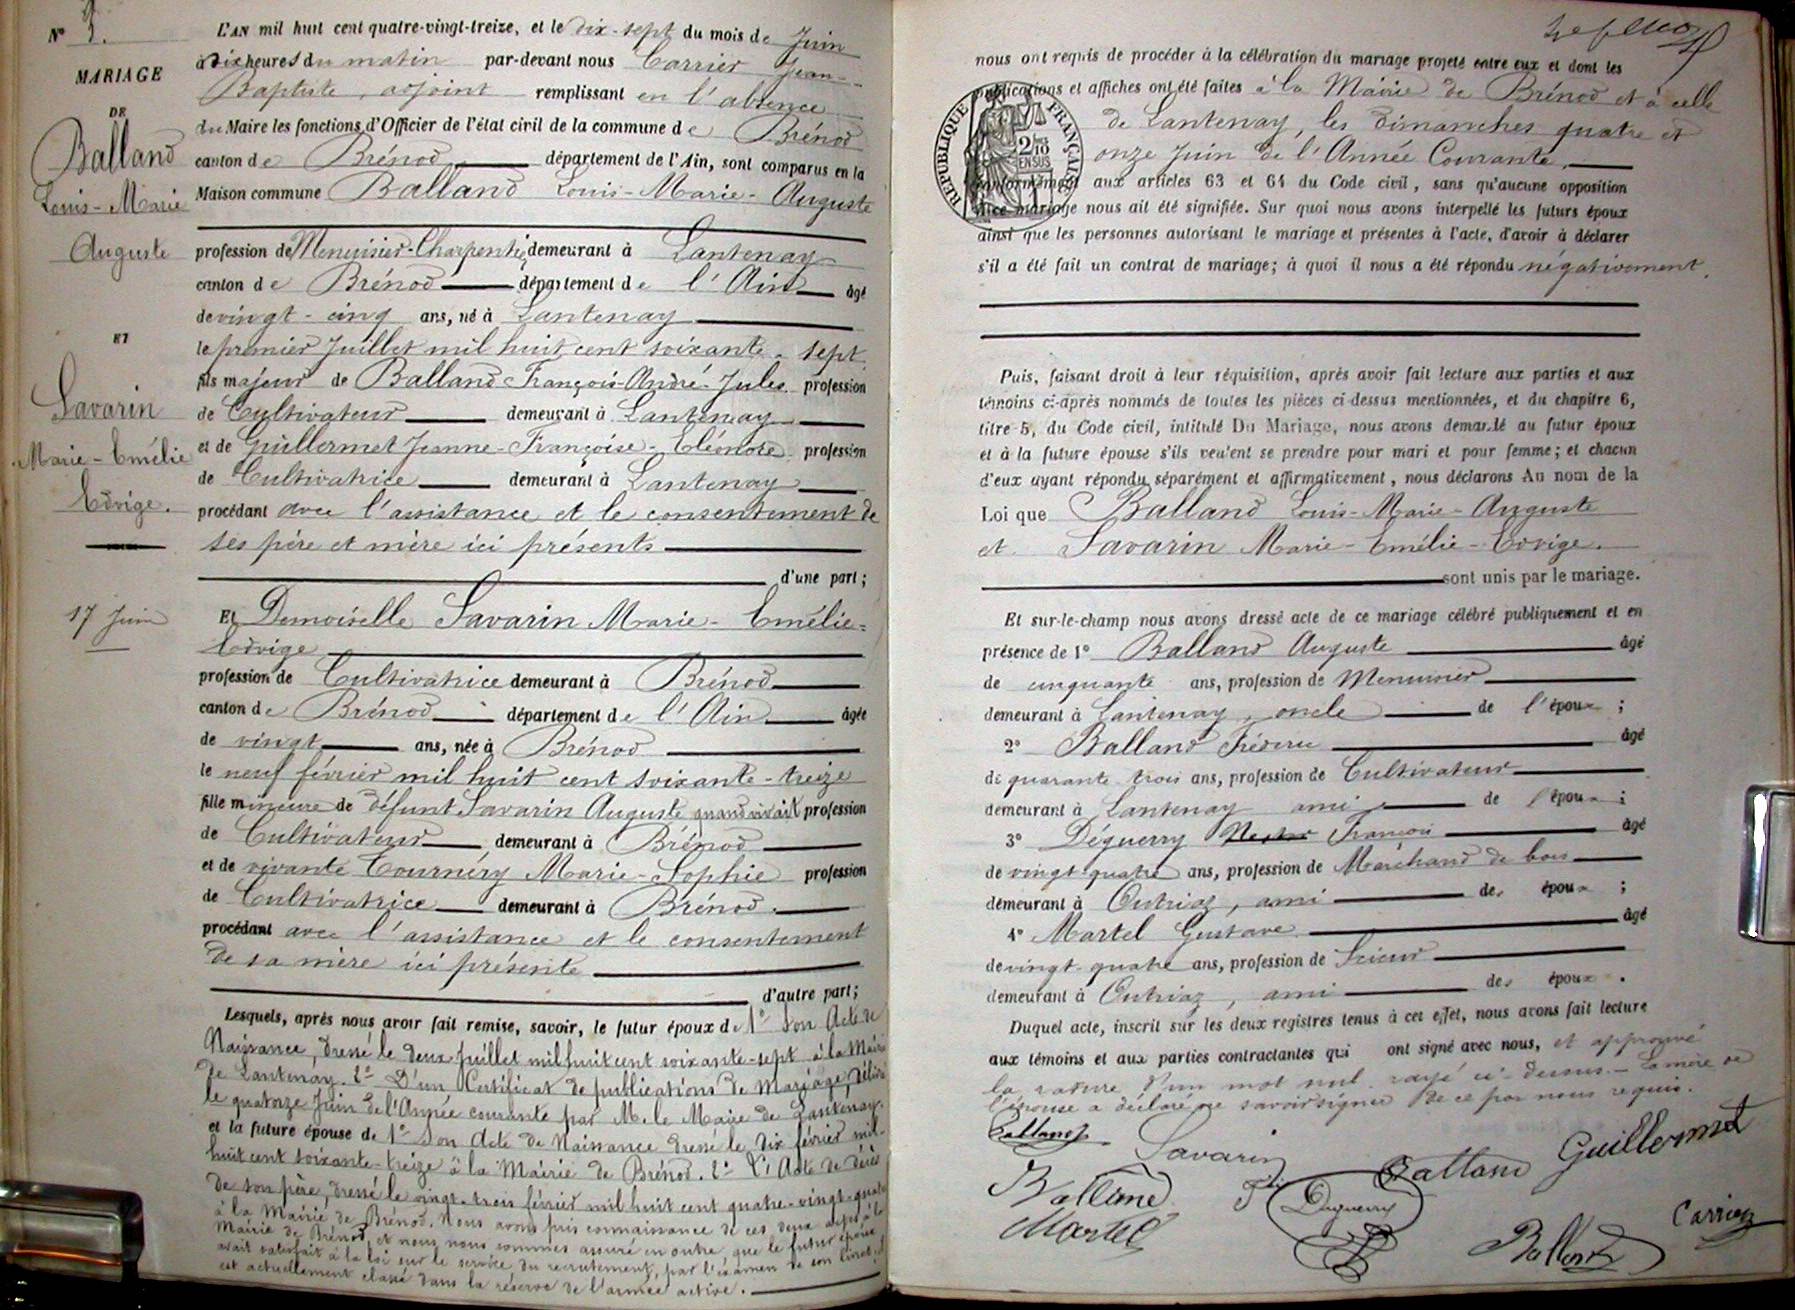 N° 3.
MARIAGE
DE
Balland
Louis-Marie
Auguste
ET
Savarin
Marie-Emélie
Edvige.
17 Juin
L'AN mil huit cent quatre-vingt-treize, et le dix-sept du mois de Juin
à dix heures du matin par-devant nous Carrier Jean-
Baptiste, adjoint remplissant en l'absence
du Maire les fonctions d'Officier de l'état civil de la commune de Brénod
canton de Brénod département de l'Ain, sont comparus en la
Maison commune Balland Louis-Marie-Auguste
profession de Menuisier-Charpentier demeurant à Lantenay
canton de Brénod département de l'Ain âgé
de vingt-cinq ans, né à Lantenay
le premier Juillet mil huit cent soixante-sept
fils majeur de Balland François-André-Jules profession
de Cultivateur demeurant à Lantenay
et de Guillermet Jeanne-Françoise-Eléonore profession
de Cultivatrice demeurant à Lantenay
procédant avec l'assistance et le consentement de
ses père et mère ici présents
d'une part;
Et Demoiselle Savarin Marie-Emélie-
Edvige
profession de Cultivatrice demeurant à Brénod
canton de Brénod département de l'Ain âgée
de vingt ans, née à Brénod
le neuf février mil huit cent soixante-treize
fille mineure de défunt Savarin Auguste quand vivait profession
de Cultivateur demeurant à Brénod
et de vivante Tournéry Marie-Sophie profession
de Cultivatrice demeurant à Brénod.
procédant avec l'assistance et le consentement
de sa mère ici présente
d'autre part;
Lesquels, après nous avoir fait remise, savoir, le futur époux de 1° Son Acte de
Naissance, dressé le deux Juillet mil huit cent soixante-sept à la Mairie
de Lantenay. 2° D'un Certificat de publications de Mariage délivré
le quatorze Juin de l'Année courante par M. le Maire de Lantenay.
et la future épouse de 1° Son Acte de Naissance dressé le dix février mil-
huit cent soixante-treize à la Mairie de Brénod. 2° L'Acte de décès
de son père, dressé le vingt-trois février mil huit cent quatre-vingt-quatre
à la Mairie de Brénod. Nous avons pris connaissance de ces deux actes à la
Mairie de Brénod, et nous nous sommes assuré en outre, que le futur époux
avait satisfait à la loi sur le service du recrutement, par l'examen de son livret.
est actuellement classé dans la réserve de l'armée active.
nous ont requis de procéder à la célébration du mariage projeté entre eux et dont les
publications et affiches ont été faites à la Mairie de Brénod et à celle
de Lantenay, les dimanches quatre et
onze Juin de l'Année Courante,
RÉPUBLIQUE FRANÇAISE
2/10 EN SUS
conformément aux articles 63 et 64 du Code civil, sans qu'aucune opposition
audit mariage nous ait été signifiée. Sur quoi nous avons interpellé les futurs époux
ainsi que les personnes autorisant le mariage et présentes à l'acte, d'avoir à déclarer
s'il a été fait un contrat de mariage; à quoi il nous a été répondu négativement.
Puis, faisant droit à leur réquisition, après avoir fait lecture aux parties et aux
témoins ci-après nommés de toutes les pièces ci-dessus mentionnées, et du chapitre 6,
titre 5, du Code civil, intitulé Du Mariage, nous avons demandé au futur époux
et à la future épouse s'ils veulent se prendre pour mari et pour femme; et chacun
d'eux ayant répondu séparément et affirmativement, nous déclarons Au nom de la
Loi que Balland Louis-Marie-Auguste
et Savarin Marie-Emélie-Edvige.
sont unis par le mariage.
Et sur-le-champ nous avons dressé acte de ce mariage célébré publiquement et en
présence de 1° Balland Auguste âgé
de cinquante ans, profession de Menuisier
demeurant à Lantenay, oncle de l'époux;
2° Balland Fréderic âgé
de quarante trois ans, profession de Cultivateur
demeurant à Lantenay ami de l'époux;
3° Déguerry François âgé
de vingt quatre ans, profession de Marchand de bois
demeurant à Outriaz, ami des époux;
4° Martel Gustave âgé
de vingt-quatre ans, profession de Scieur
demeurant à Outriaz, ami des époux.
Duquel acte, inscrit sur les deux registres tenus à cet effet, nous avons fait lecture
aux témoins et aux parties contractantes qui ont signé avec nous, et approuvé
la rature d'un mot nul rayé ci-dessus. - La mère de
l'épouse a déclaré ne savoir signer de ce par nous requis.
Balland Savarin Balland Guillermet
Balland Fçois Déguerry Carrier
Martel Balland